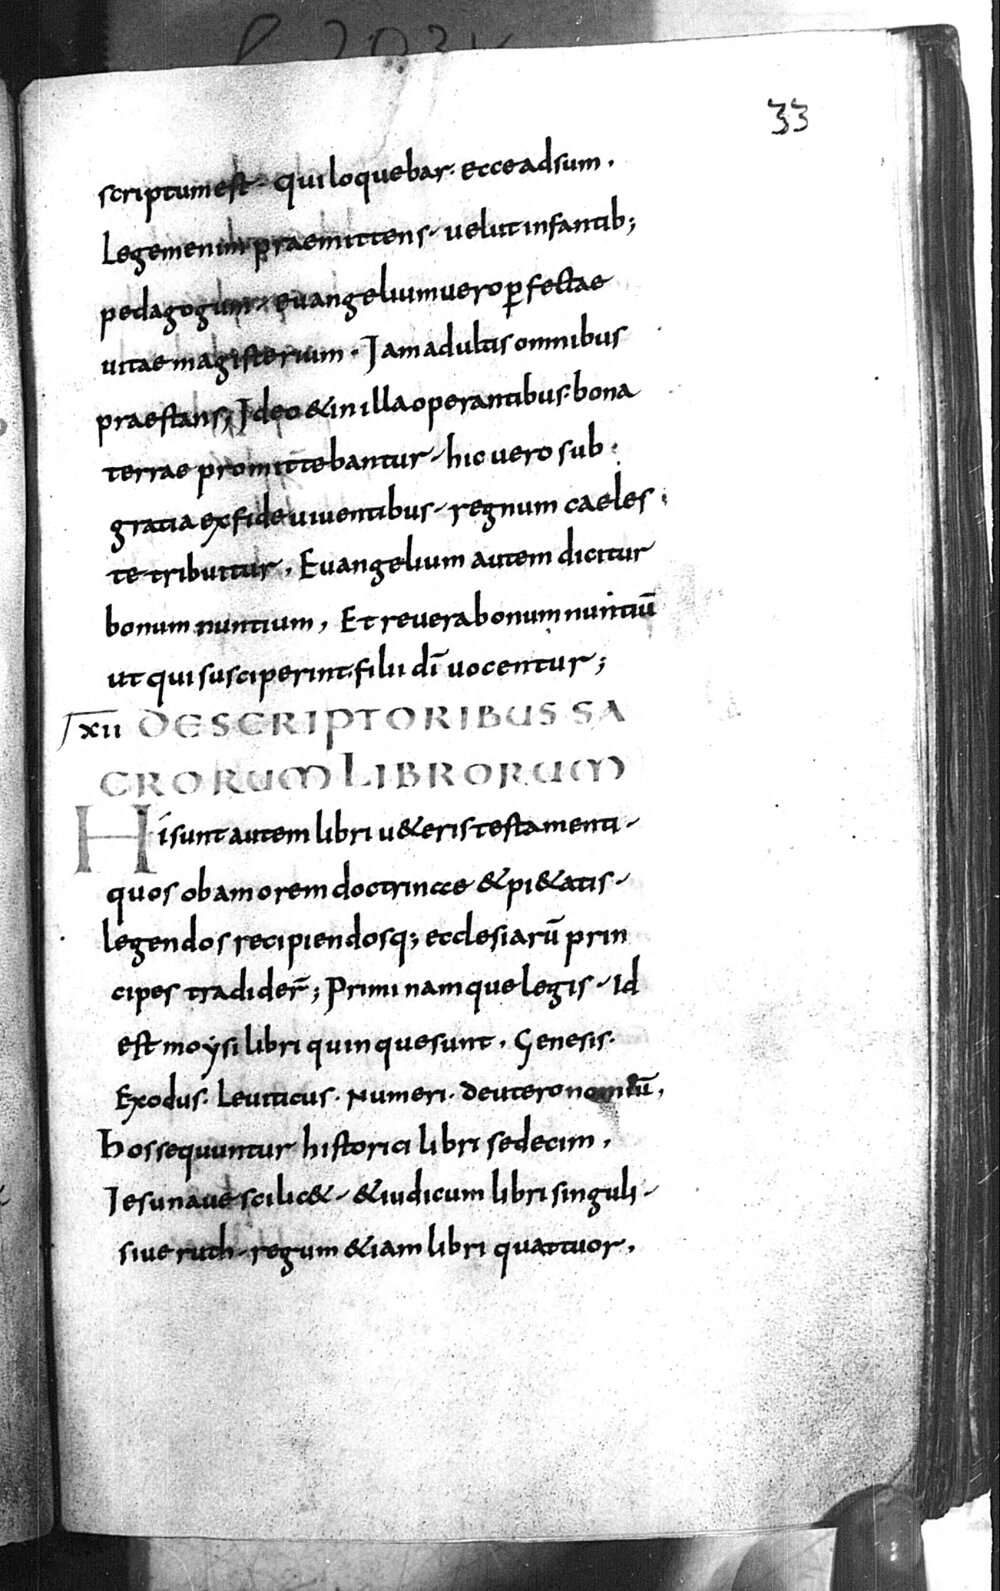 33
scriptum est · qui loquebar · ecce adsum ·
Legem enim praemittens · velut infantib;
pedagogum · evangelium vero ꝑfectae
vitae magisterium · Jam adultis omnibus
praestans; Ideo & in illa operantibus · bona
terrae promittebantur · hic vero sub
gratia ex fide viventibus · regnum caeles
te tribuitur · Evangelium autem dicitur
bonum nuntium, Et revera bonum nuntiū
ut qui susciperint · filii dī vocentur;
xii DE SCRIPTORIBUS SA
CRORUM LIBRORUM
Hi sunt autem libri v&eris testamenti ·
quos ob amorem doctrinae & pi&atis ·
legendos recipiendosq; ecclesiarū prin
cipes tradider̄; Primi namque legis · Id
est moẏsi libri quinque sunt · Genesis ·
Exodus · Leviticus · Numeri · deuteronomiū,
Hos sequuntur historici libri sedecim,
Jesu nave scilic& · & iudicum libri singuli ·
sive ruth · regum &iam libri quattuor,